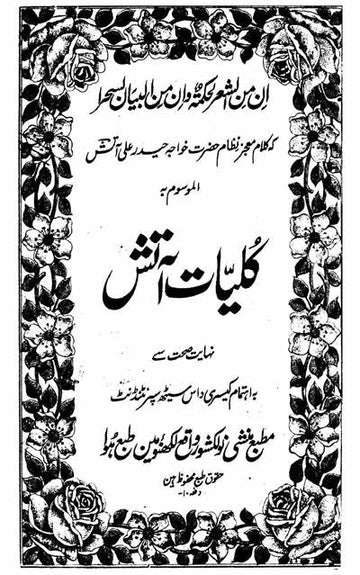 ان من الشعر لحکمۃ وان من البیان لسحرا
کہ کلام معجز نظام حضرت خواجہ حیدر علی آتش
الموسوم بہ
کُلیّات آتش
نہایت صحت سے
بہ اہتمام کیسری داس سیٹھ سپرنٹنڈنٹ
مطبع منشی نولکشور واقع لکھنؤ مین طبع ہوا
حقوق طبع محفوظ ہین